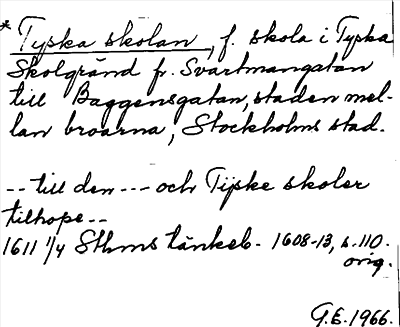 * Tyska skolan, f. skola i Tyska
Skolgränd fr. Svartmangatan
till Baggensgatan, staden mel-
lan broarna, Stockholms stad.
-- till den --- och Tijske skoler
tilhope --
1611 1/4 Sthms tänkeb. 1608-13, s. 110.
orig.
G.E. 1966.